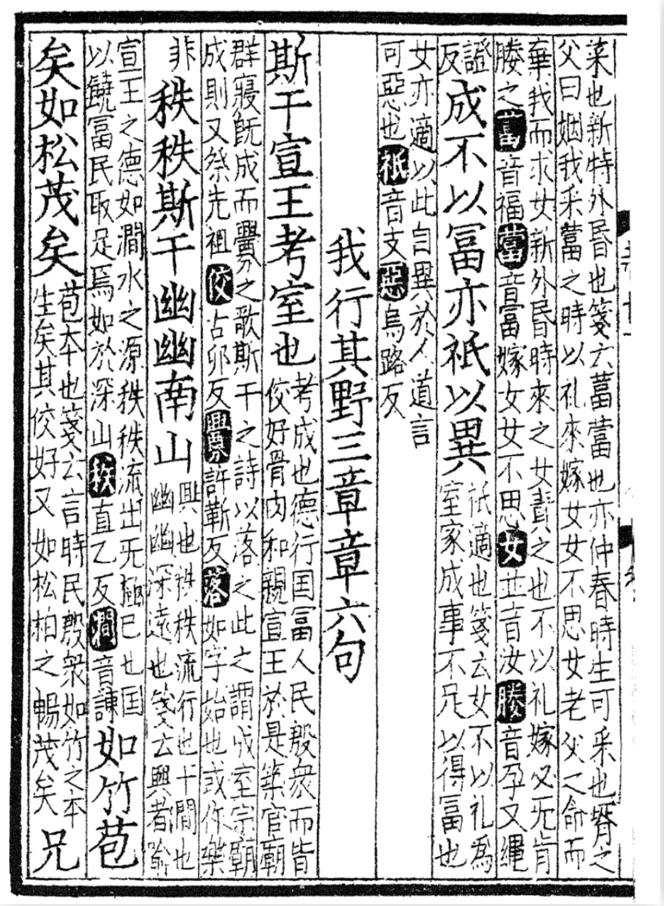 菜也新特外昏也箋云葍䔰也亦仲春時生可采也壻之
父曰姻我采葍之時以礼來嫁女女不思女老父之命而
棄我而求女新外昏時來之女責之也不以礼嫁必无肯
媵之葍音福䔰音富嫁女女不思女並音汝媵音孕又繩
證反成不以冨亦祇以異祇適也箋云女不以礼為室家成事不足以得冨也
女亦適以此自異於人道言
可惡也祇音支惡烏路反
我行其野三章章六句
斯干宣王考室也考成也德行国冨人民殷衆而皆佼好骨肉和親宣王於是築宮廟
群寢既成而釁之歌斯干之詩以落之此之謂成室宗廟
成則又祭先祖佼古卯反釁許靳反落如字始也或作樂
非秩秩斯干幽幽南山興也秩秩流行也干澗也幽幽深遠也箋云興者喻
宣王之德如澗水之源秩秩流出无極已也国以饒冨民取足焉如於深山秩直乙反澗音諫如竹苞
矣如松茂矣苞本也箋云言時民殷衆如竹之本生矣其佼好又如松柏之暢茂矣兄